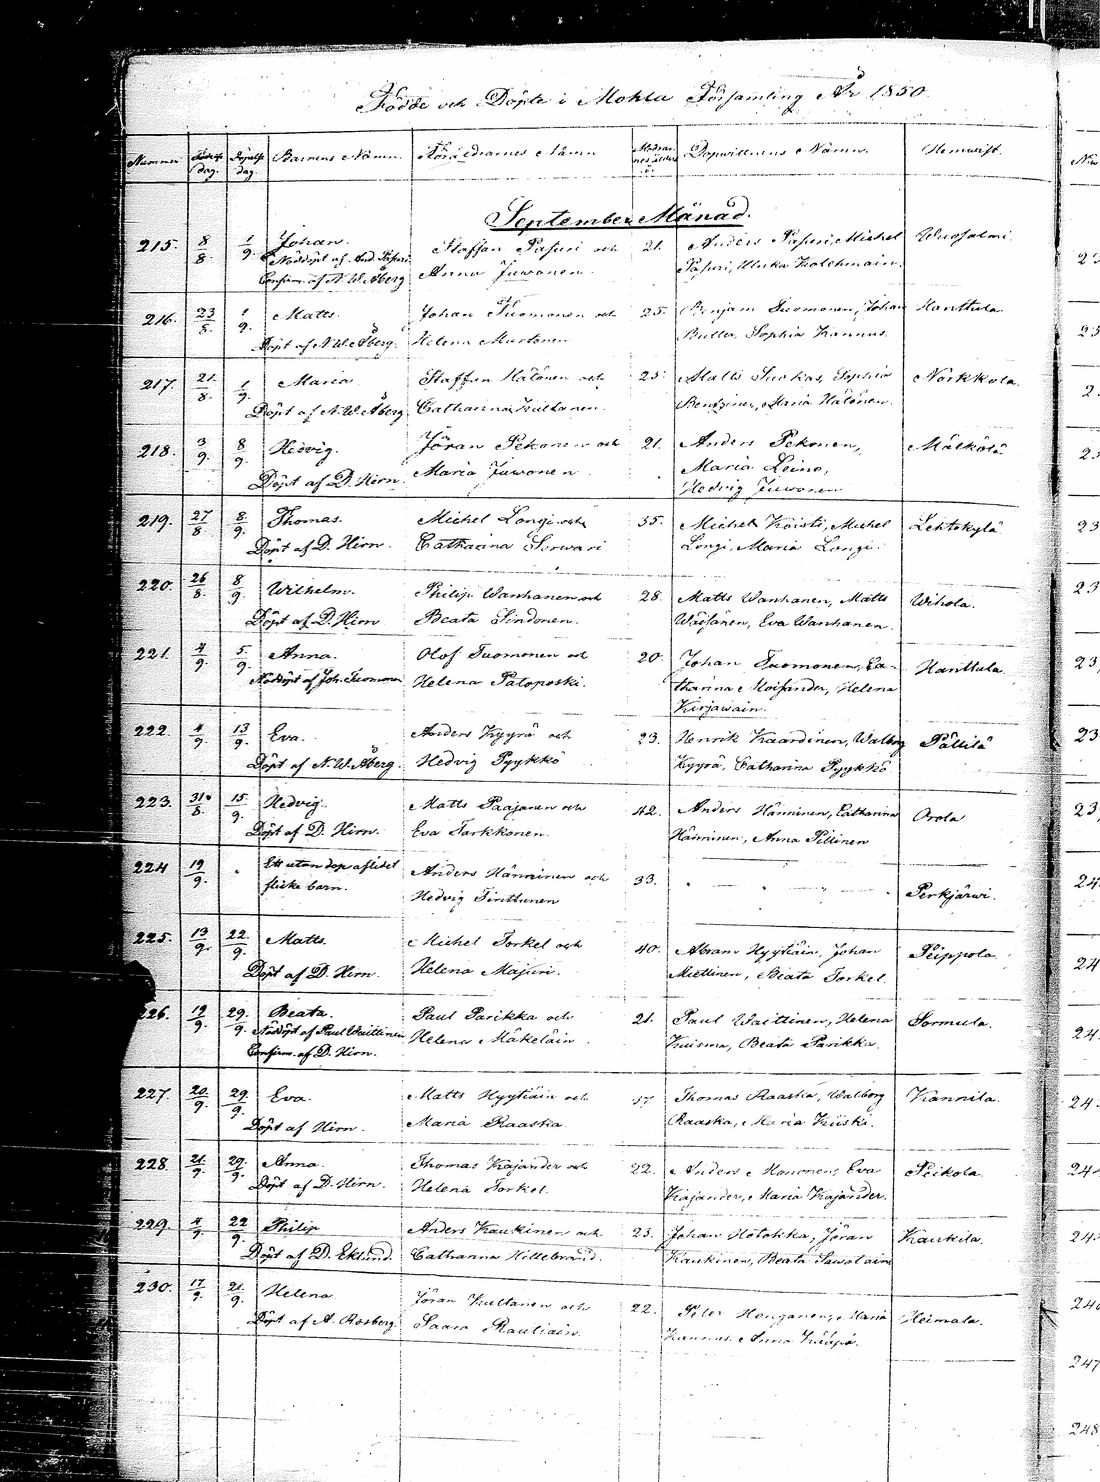 Födde och Döpte i Mohla Församling År 1850.
Nummer. Födelse dag. Döpelse dag. Barnens Namn. Föräldrarnes Namn Modrens ålder Dopwittnens Namn. Hemwist.
September Månad.
215. 8/8. 1/9. Johan. Staffan Pafuri och 21. Anders Pafuri, Michel Wuosalmi.
Nöddöpt af And. Pafuri Anna Juwonen. Pafuri, Ulrika Kolehmain.
Confirm. af N. W. Åberg
216. 23/8. 1/9. Matts. Johan Tuomonen och 25. Benjam Tuomonen, Johan Hanttula
Döpt af N. W. Åberg. Helena Murtonen Butter, Sophia Kannus.
217. 21/8. 1/9. Maria. Staffan Hätönen och 25. Matts Suokas, Sophia Norkkola.
Döpt af N. W. Åberg Catharina Kultanen. Maria Hätönen.
218. 3/9. 8/9. Hedvig. Jöran Pekonen och 21. Anders Pekonen, Mälkölä
Döpt af D. Hirn. Maria Juwonen Maria Leino,
Hedvig Juwonen
219. 27/8. 8/9. Thomas. Michel Longi och 35. Michel Koisti, Michel Lehtokylä
Döpt af D. Hirn. Catharina Serwari Longi, Maria Longi.
220. 26/8. 8/9. Wilhelm. Philip Wanhanen och 28. Matts Wanhanen, Matts Wihola.
Döpt af D. Hirn Beata Sindonen. Wäisänen, Eva Wanhanen.
221. 4/9. 5/9. Anna. Olof Tuomonen och 20. Johan Tuomonen, Ca- Hanttula
Nöddöpt af Joh. Tuomonen Helena Patoposki. tharina Moisander, Helena
Kirjawain.
222. 4/9. 13/9. Eva. Anders Kyyrä och 23. Henrik Kaardinen, Walborg Pällilä
Döpt af N. W. Åberg. Hedvig Pyykkö Kyyrä, Catharina Pyykkö
223. 31/8. 15/9. Hedvig. Matts Paajanen och 42. Anders Hänninen, Catharina Orola
Döpt af D. Hirn. Eva Tarkkonen. Hänninen, Anna Pillinen
224 19/9. Ett utan dop aflidet Anders Hänninen och 33.
flicke barn. Hedvig Tinttunen Perkjärwi.
225. 13/9. 22/9. Matts. Michel Torkel och 40. Abram Hyytiäin, Johan Peippola
Döpt af D. Hirn. Helena Majuri. Miettinen, Beata Torkel.
226. 19/9. 29/9. Beata. Paul Parikka och 21. Paul Waittinen, Helena Sormula.
Nöddöpt af Paul Waittinen Helena Mäkeläin Kuisma, Beata Parikka.
Confirm. af D. Hirn.
227. 20/9. 29/9. Eva. Matts Hyytiäin och 37 Thomas Raaska, Walborg Kannila.
Döpt af Hirn. Maria Raaska Raaska, Maria Kiiski.
228. 21/9. 29/9. Anna. Thomas Kajander och 22. Anders Mononen, Eva Peikola
Döpt af D. Hirn. Helena Torkel. Kajander, Maria Kajander.
229. 4/9. 22/9. Philip Anders Kaukinen och 23. Johan Hotokka, Jöran Kaukila.
Döpt af D. Eklund. Catharina Hillebrand. Kaukinen, Beata Sawolain
230. 17/9. 21/9. Helena Jöran Kultanen och 22. Peter Honganen, Maria Heimala.
Döpt af A. Rosberg. Saara Rautiain. Kannus, Anna Kääpä.